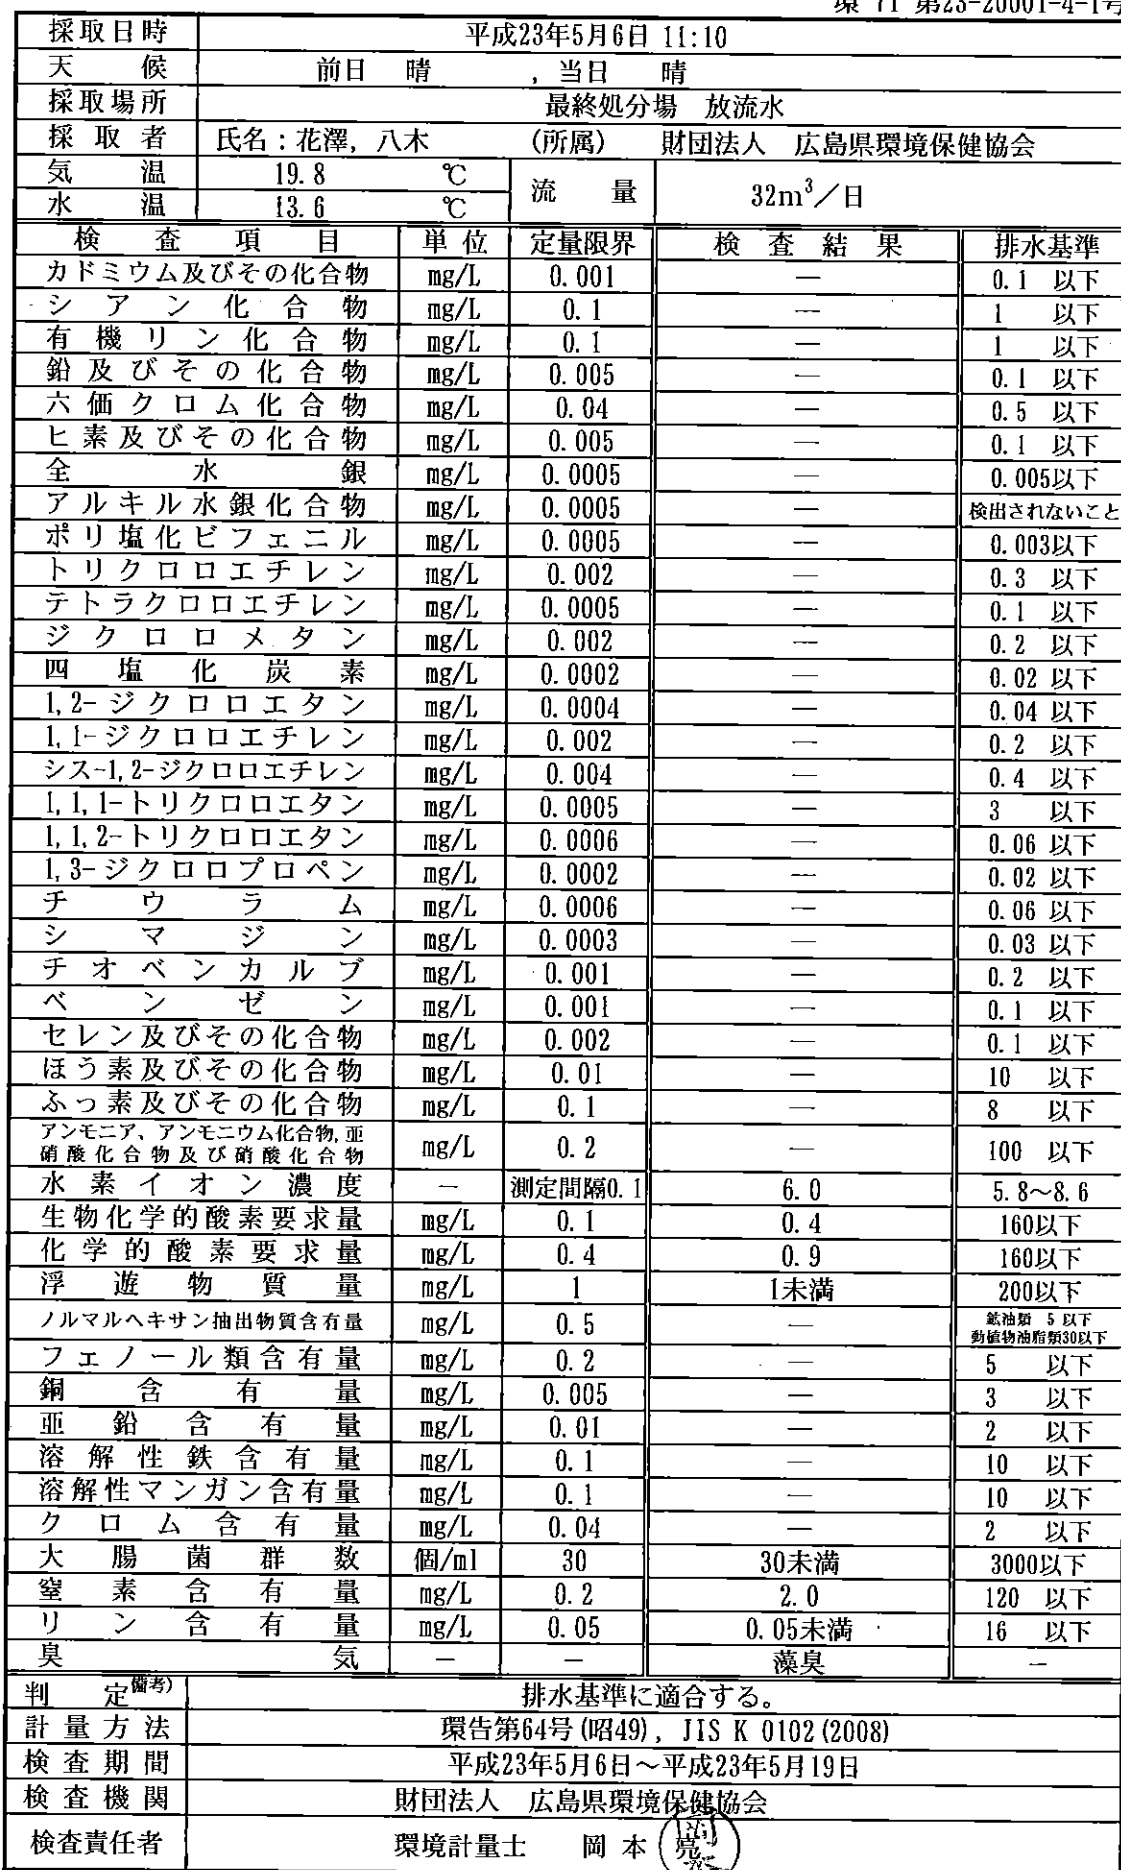 環 71 第23-20001-4-1号
採取日時 平成23年5月6日 11:10
天候 前日 晴 , 当日 晴
採取場所 最終処分場 放流水
採取者 氏名：花澤, 八木 (所属) 財団法人 広島県環境保健協会
気温 19.8 ℃ 流量 32m³／日
水温 13.6 ℃
検査項目 単位 定量限界 検査結果 排水基準
カドミウム及びその化合物 mg/L 0.001 — 0.1 以下
シアン化合物 mg/L 0.1 — 1 以下
有機リン化合物 mg/L 0.1 — 1 以下
鉛及びその化合物 mg/L 0.005 — 0.1 以下
六価クロム化合物 mg/L 0.04 — 0.5 以下
ヒ素及びその化合物 mg/L 0.005 — 0.1 以下
全水銀 mg/L 0.0005 — 0.005以下
アルキル水銀化合物 mg/L 0.0005 — 検出されないこと
ポリ塩化ビフェニル mg/L 0.0005 — 0.003以下
トリクロロエチレン mg/L 0.002 — 0.3 以下
テトラクロロエチレン mg/L 0.0005 — 0.1 以下
ジクロロメタン mg/L 0.002 — 0.2 以下
四塩化炭素 mg/L 0.0002 — 0.02 以下
1,2-ジクロロエタン mg/L 0.0004 — 0.04 以下
1,1-ジクロロエチレン mg/L 0.002 — 0.2 以下
シス-1,2-ジクロロエチレン mg/L 0.004 — 0.4 以下
1,1,1-トリクロロエタン mg/L 0.0005 — 3 以下
1,1,2-トリクロロエタン mg/L 0.0006 — 0.06 以下
1,3-ジクロロプロペン mg/L 0.0002 — 0.02 以下
チウラム mg/L 0.0006 — 0.06 以下
シマジン mg/L 0.0003 — 0.03 以下
チオベンカルブ mg/L 0.001 — 0.2 以下
ベンゼン mg/L 0.001 — 0.1 以下
セレン及びその化合物 mg/L 0.002 — 0.1 以下
ほう素及びその化合物 mg/L 0.01 — 10 以下
ふっ素及びその化合物 mg/L 0.1 — 8 以下
アンモニア、アンモニウム化合物, 亜
硝酸化合物及び硝酸化合物 mg/L 0.2 — 100 以下
水素イオン濃度 — 測定間隔0.1 6.0 5.8～8.6
生物化学的酸素要求量 mg/L 0.1 0.4 160以下
化学的酸素要求量 mg/L 0.4 0.9 160以下
浮遊物質量 mg/L 1 1未満 200以下
ノルマルヘキサン抽出物質含有量 mg/L 0.5 — 鉱油類 5 以下
動植物油脂類30以下
フェノール類含有量 mg/L 0.2 — 5 以下
銅含有量 mg/L 0.005 — 3 以下
亜鉛含有量 mg/L 0.01 — 2 以下
溶解性鉄含有量 mg/L 0.1 — 10 以下
溶解性マンガン含有量 mg/L 0.1 — 10 以下
クロム含有量 mg/L 0.04 — 2 以下
大腸菌群数 個/ml 30 30未満 3000以下
窒素含有量 mg/L 0.2 2.0 120 以下
リン含有量 mg/L 0.05 0.05未満 16 以下
臭気 — — 藻臭 —
判定備考) 排水基準に適合する。
計量方法 環告第64号(昭49), JIS K 0102(2008)
検査期間 平成23年5月6日～平成23年5月19日
検査機関 財団法人 広島県環境保健協会
検査責任者 環境計量士 岡本 亮